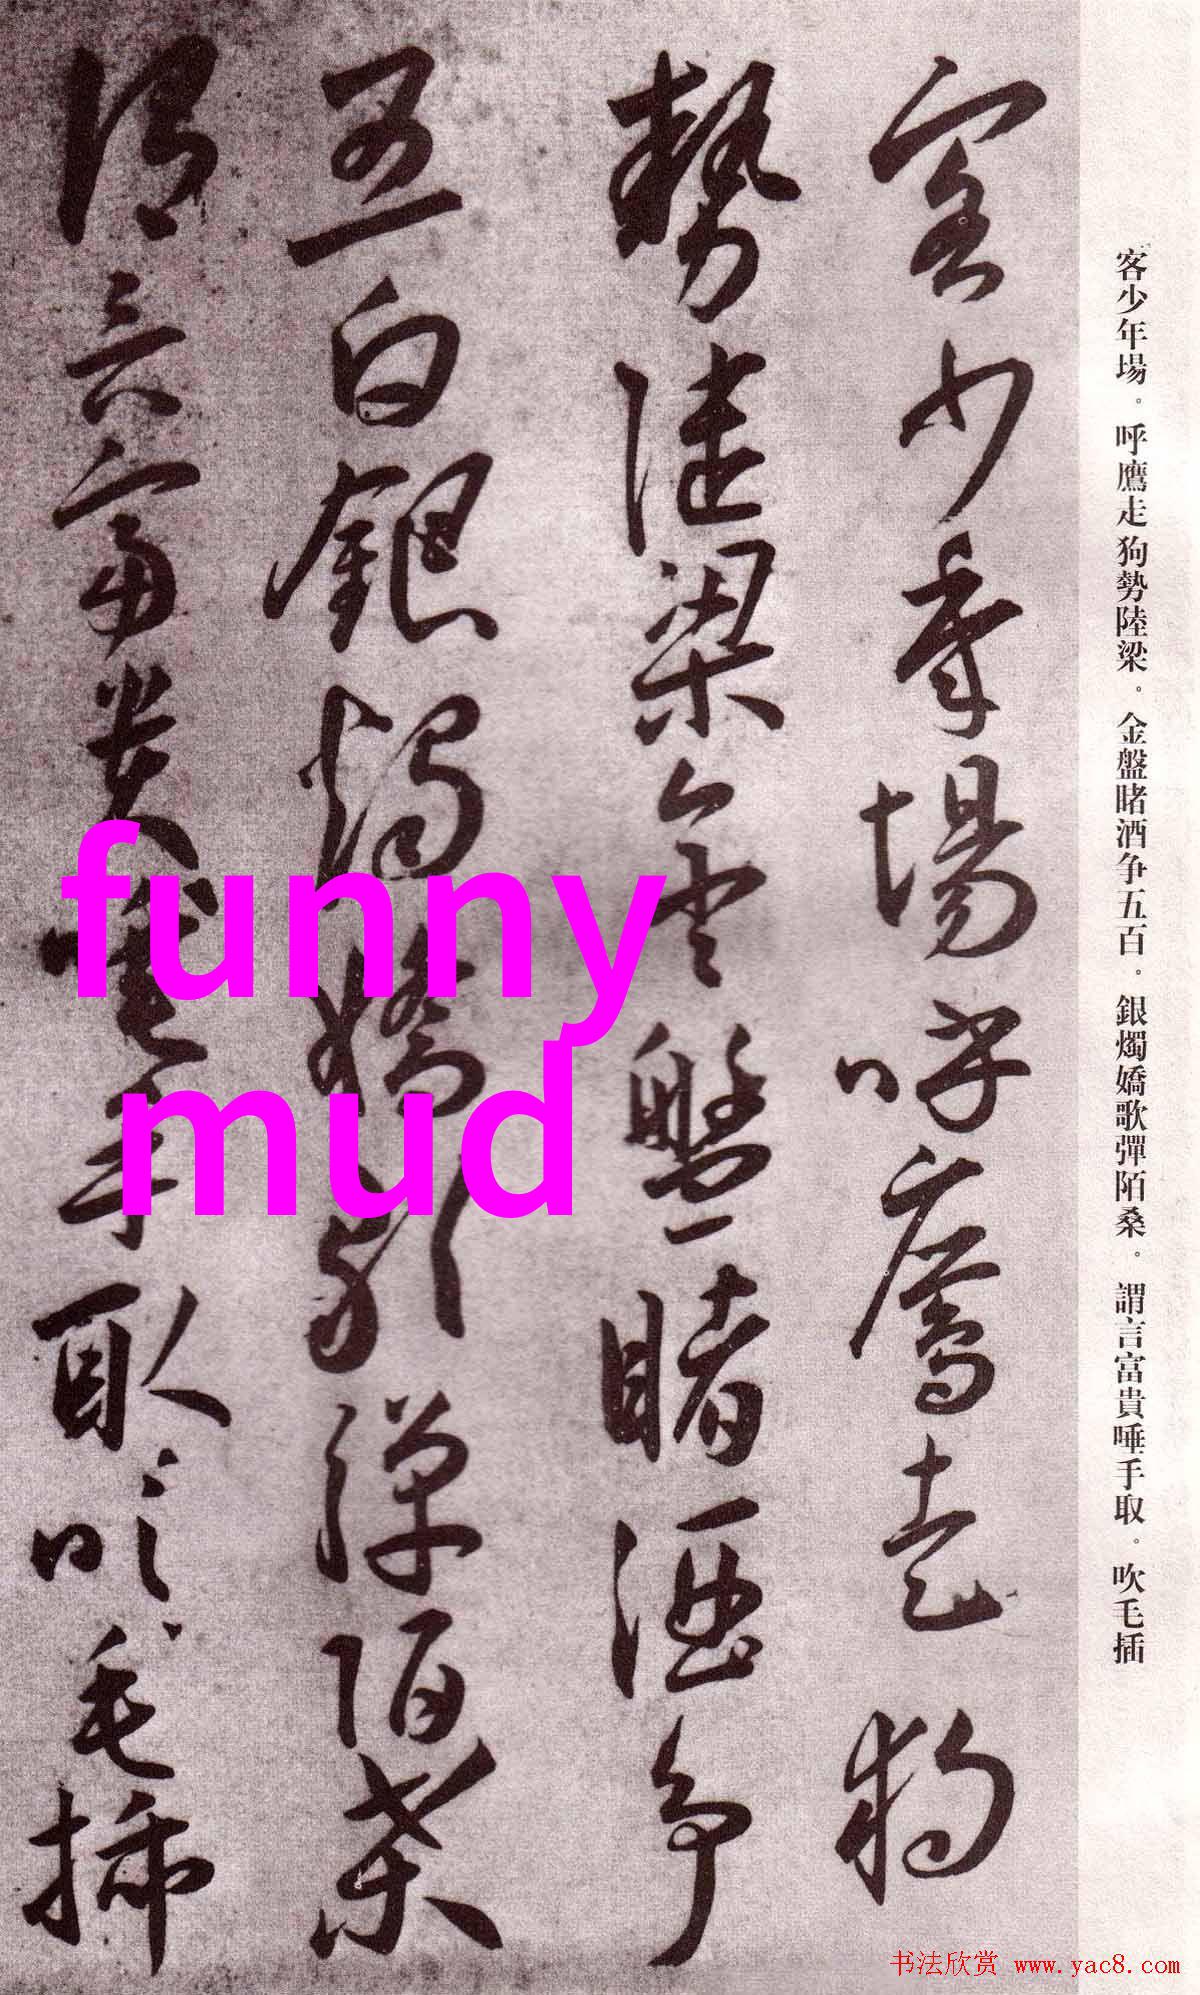 客少年場呼鷹走狗
勢陸梁金盤賭酒争
五白銀燭嬌歌彈陌桑
謂言富貴唾手取吹毛插
客少年場。呼鷹走狗勢陸梁。金盤賭酒争五百。銀燭嬌歌彈陌桑。謂言富貴唾手取。吹毛插
funny
mud
书法欣赏 www.yac8.com